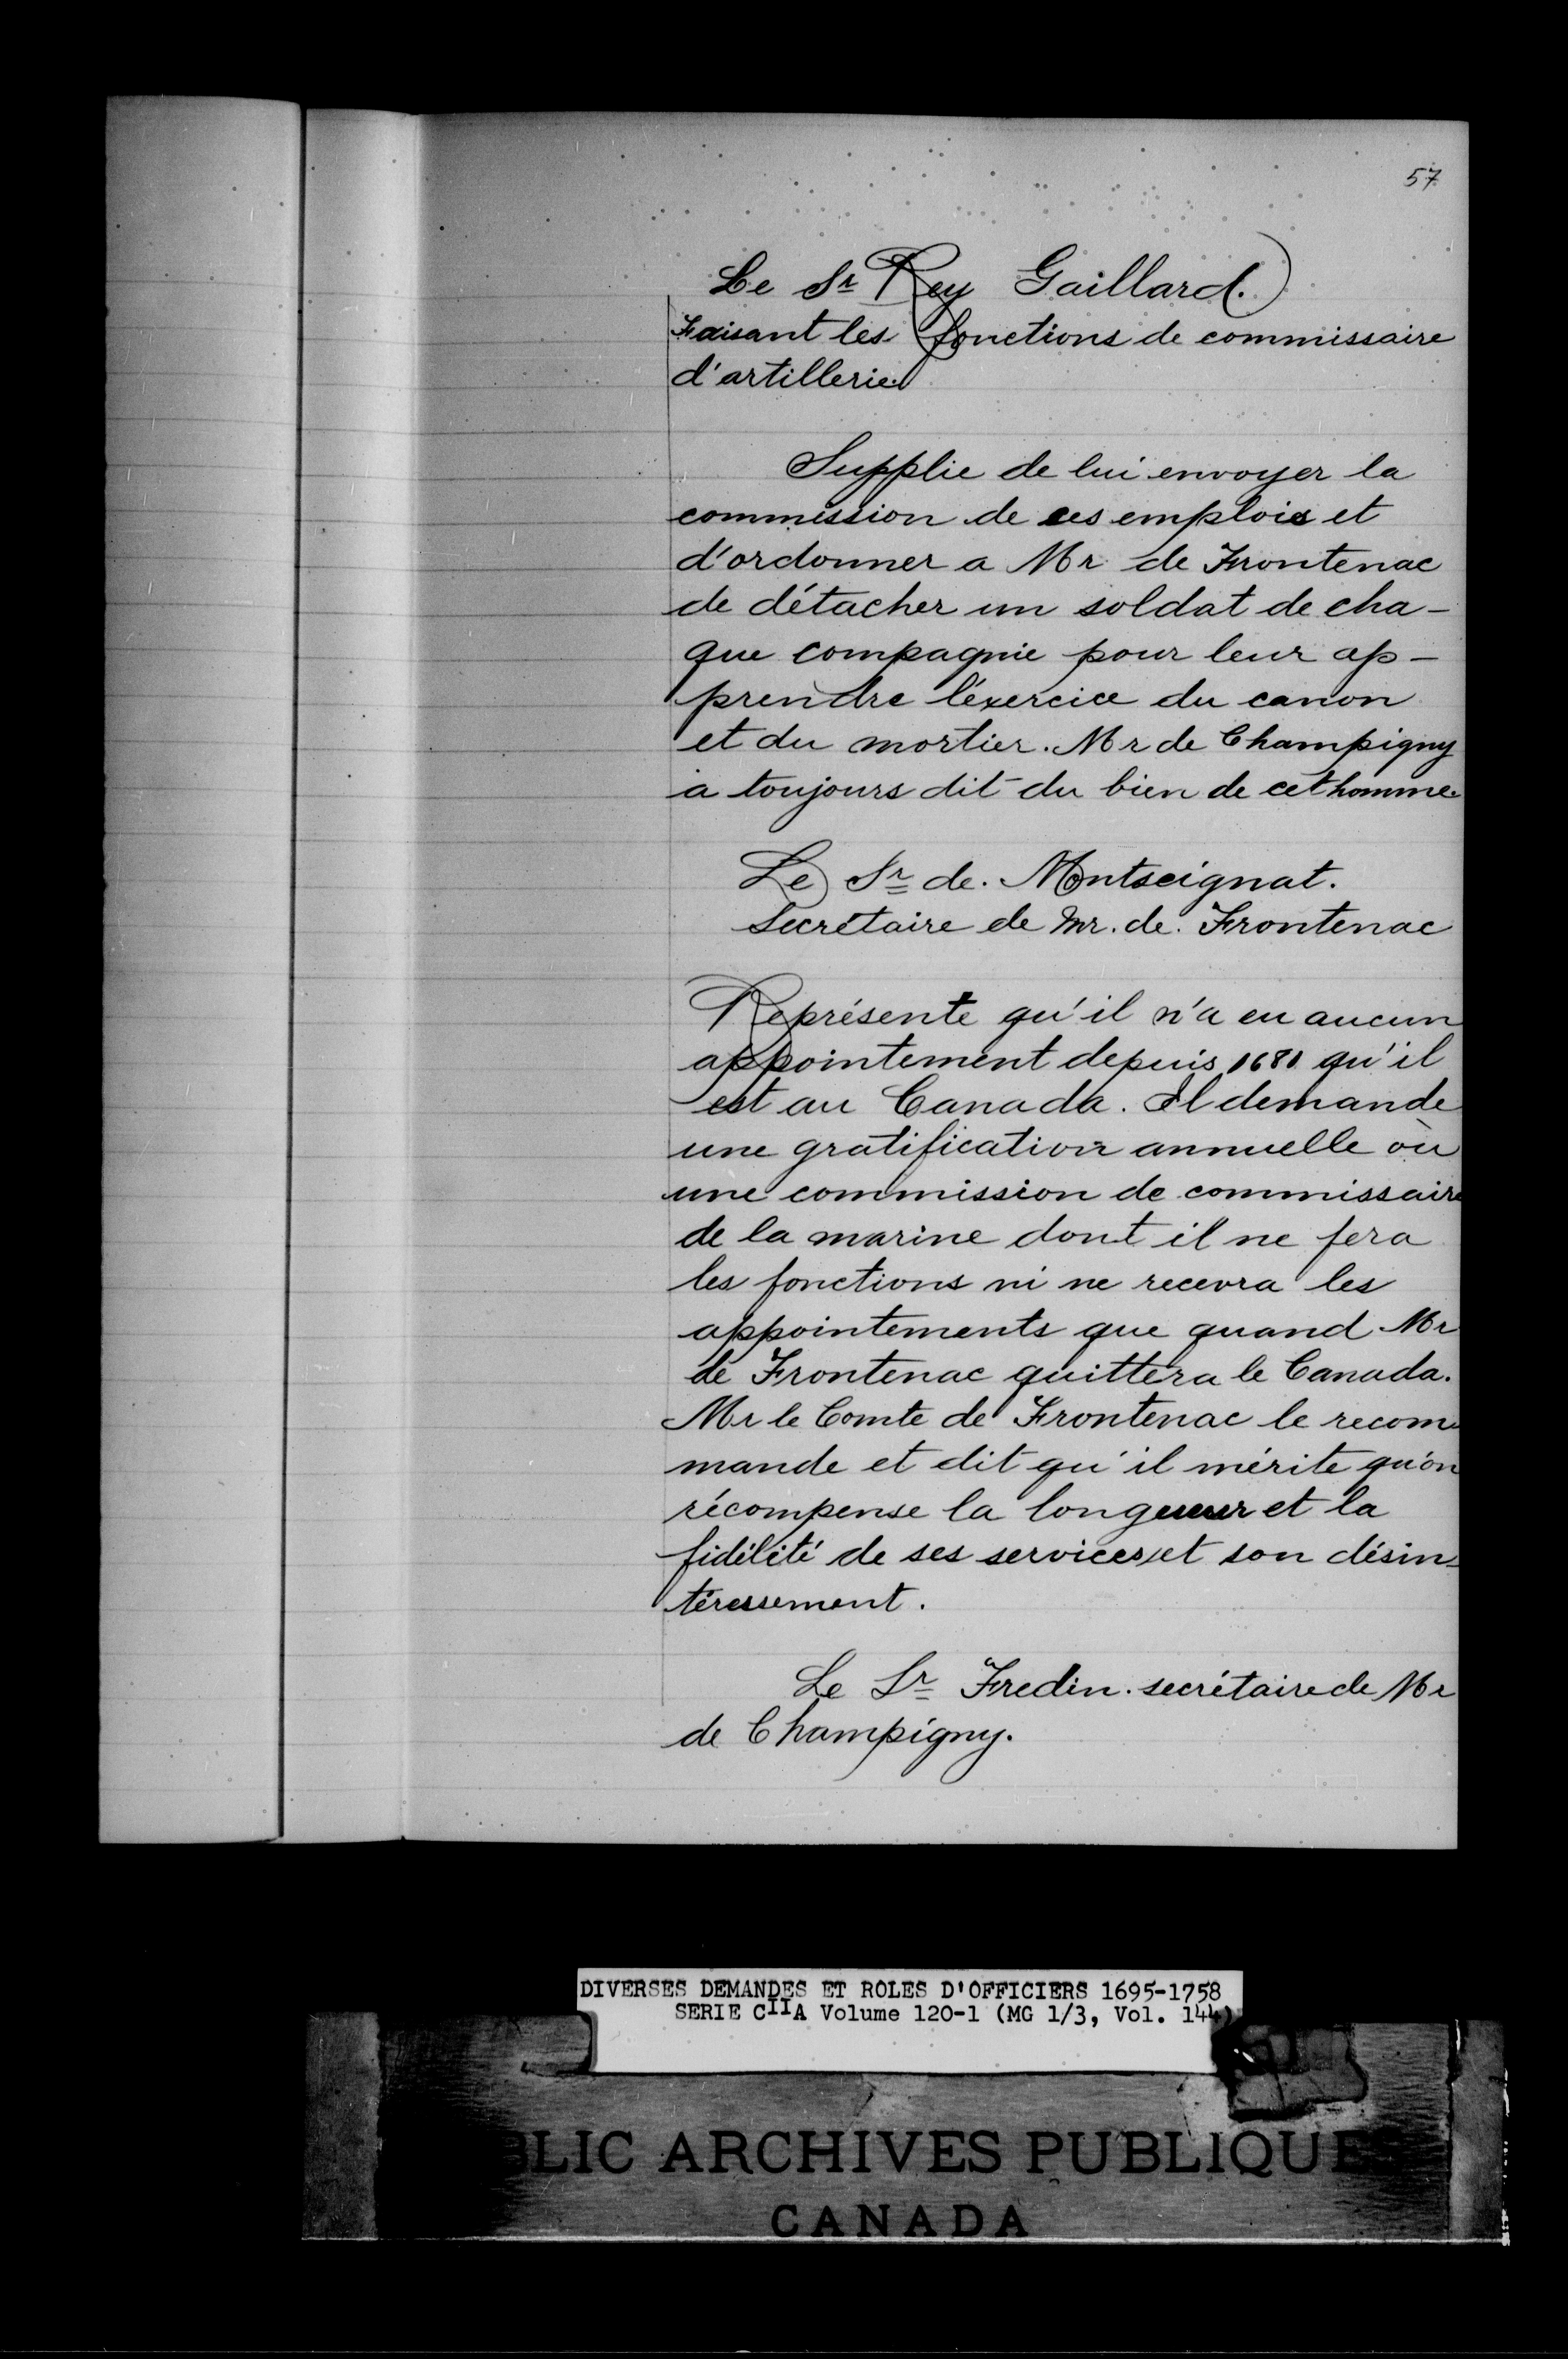 57
Le Sr Rey Gaillard.
Faisant les fonctions de commissaire
d'artillerie
Supplie de lui envoyer la
commission de ces emplois et
d'ordonner a Mr de Frontenac
de détacher un soldat de cha-
que compagnie pour leur ap-
prendre l'éxercice du canon
et du mortier. Mr de Champigny
a toujours dit du bien de cet homme.
Le Sr de. Montseignat.
Secrétaire de Mr. de Frontenac
Représente qu'il n'a eu aucun
appointement depuis 1681 qu'il
est au Canada. Il demande
une gratification annuelle où
une commission de commissaire
de la marine dont il ne fera
les fonctions ni ne recevra les
appointements que quand Mr
de Frontenac quittera le Canada.
Mr le Comte de Frontenac le recom-
mande et dit qu'il mérite qu'on
récompense la longueur et la
fidélité de ses services et son désin-
téressement.
Le Sr Fredin. secrétaire de Mr
de Champigny.
DIVERSES DEMANDES ET ROLES D'OFFICIERS 1695-1758
SERIE CIIA Volume 120-1 (MG 1/3, Vol. 144)
BLIC ARCHIVES PUBLIQUE
CANADA